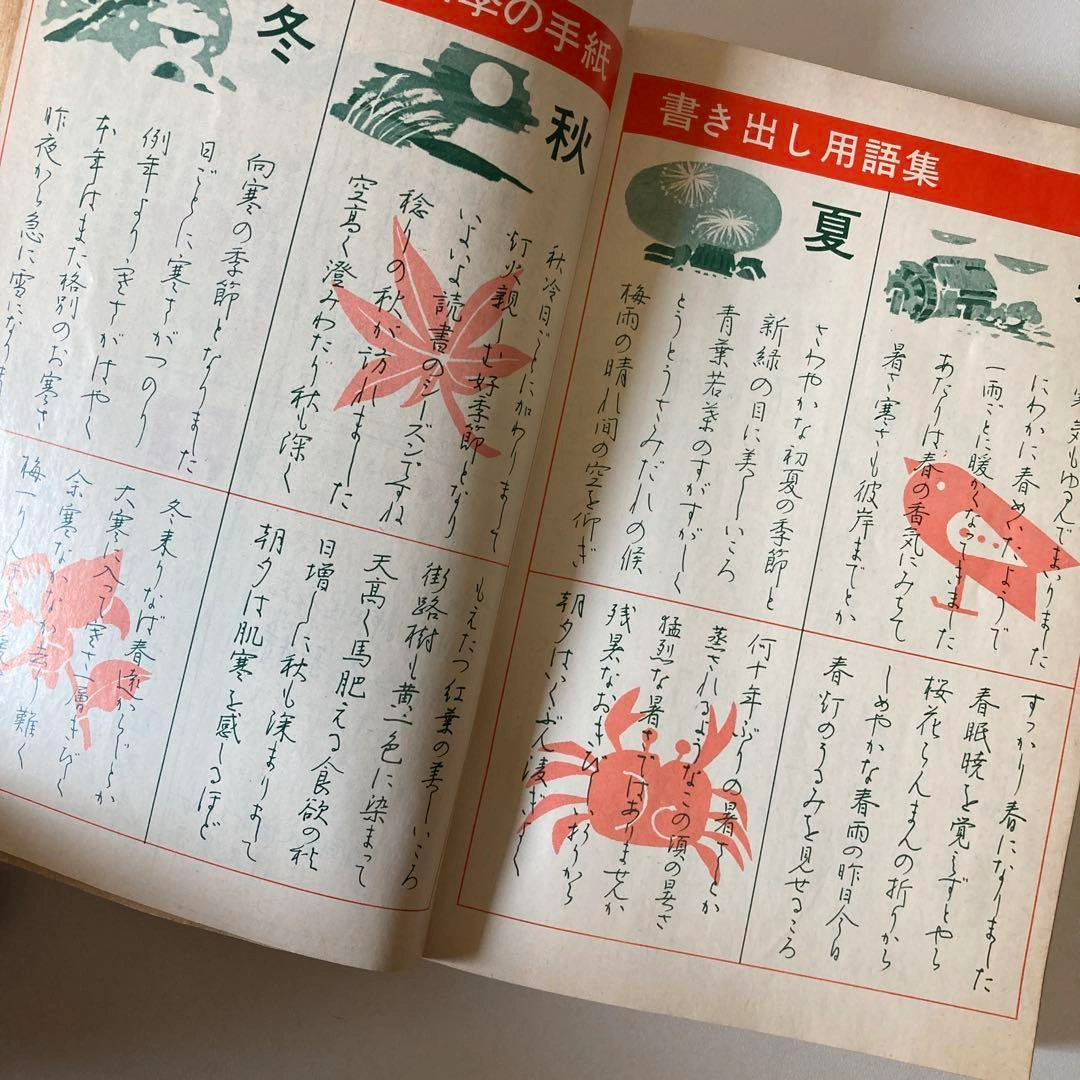 書き出し用語集
季の手紙
寒気もゆるんでまいりました
にわかに春めいたようで
一雨ごとに暖かくなってきました
あたりは春の香気にみちて
暑さ寒さも彼岸までとか
すっかり春になりました
春眠暁を覚えずとやら
桜花らんまんの折りから
しめやかな春雨の昨日今日
春灯のうるみを見せるころ
夏
さわやかな初夏の季節と
新緑の目に美しいころ
青葉若葉のすがすがしく
とうとうさみだれの候
梅雨の晴れ間の空を仰ぎ
何十年ぶりの暑さとか
蒸されるようなこの頃の暑さ
猛烈な暑さではありませんか
残暑なおきびしい折りから
朝夕はいくぶん凌ぎよく
秋
秋冷日ごとに加わりまして
灯火親しむ好季節となり
いよいよ読書のシーズンですね
稔りの秋が訪れました
空高く澄みわたり秋も深く
もえたつ紅葉の美しいころ
街路樹も黄一色に染まって
天高く馬肥える食欲の秋
日増しに秋も深まりまして
朝夕は肌寒を感じるほど
冬
向寒の季節となりました
日ごとに寒さがつのり
例年より寒さがはやく
本年はまた格別のお寒さ
昨夜から急に雪になりま
冬来りなば春遠からじとか
大寒に入って寒さ一層きびしく
余寒なかなか去り難く
梅一りん